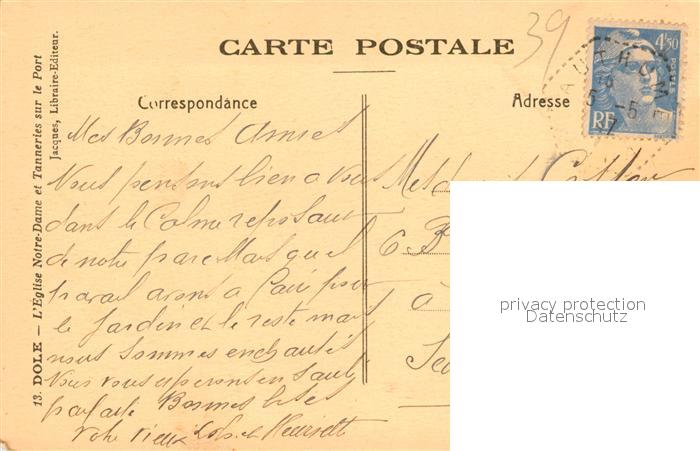 39
CARTE POSTALE
4F50
POSTES
RF
5 -5
Correspondance
Adresse
13. DOLE — L'Eglise Notre-Dame et Tanneries sur le Port
Jacques, Libraire-Editeur.
Mes Bonnes Amies
Nous pensons bien a vous
dans le Calme reposant
de notre parc Mais quel
travail avons a faire pour
le Jardin et le reste mais
nous sommes enchantés
Nous vous esperons en Santé
parfaite Bonnes bises
Votre vieux
6 B
à
privacy protection
Datenschutz